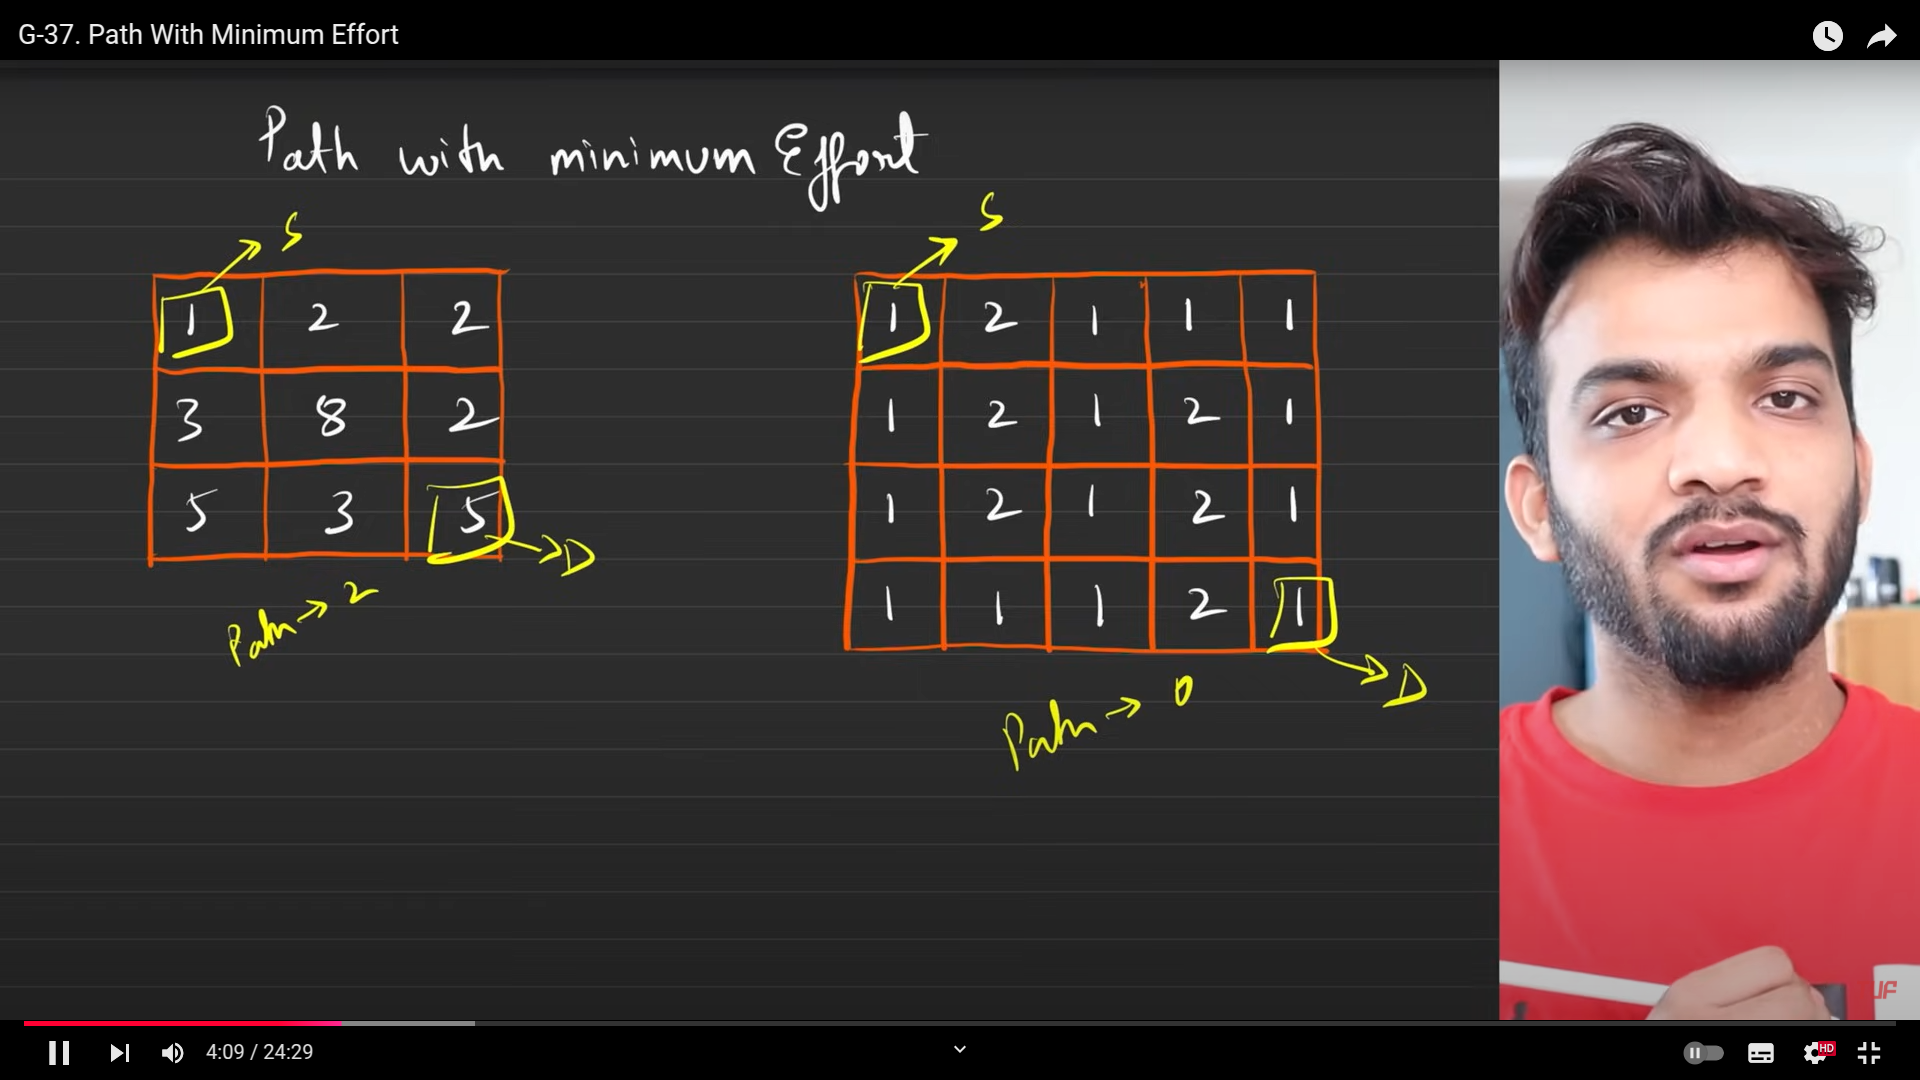 G-37. Path With Minimum Effort
Path with minimum Effort
S
S
1 2 2
3 8 2
5 3 5
D
Path → 2
1 2 1 1 1
1 2 1 2 1
1 2 1 2 1
1 1 1 2 1
D
Path → 0
UF
4:09 / 24:29
HD